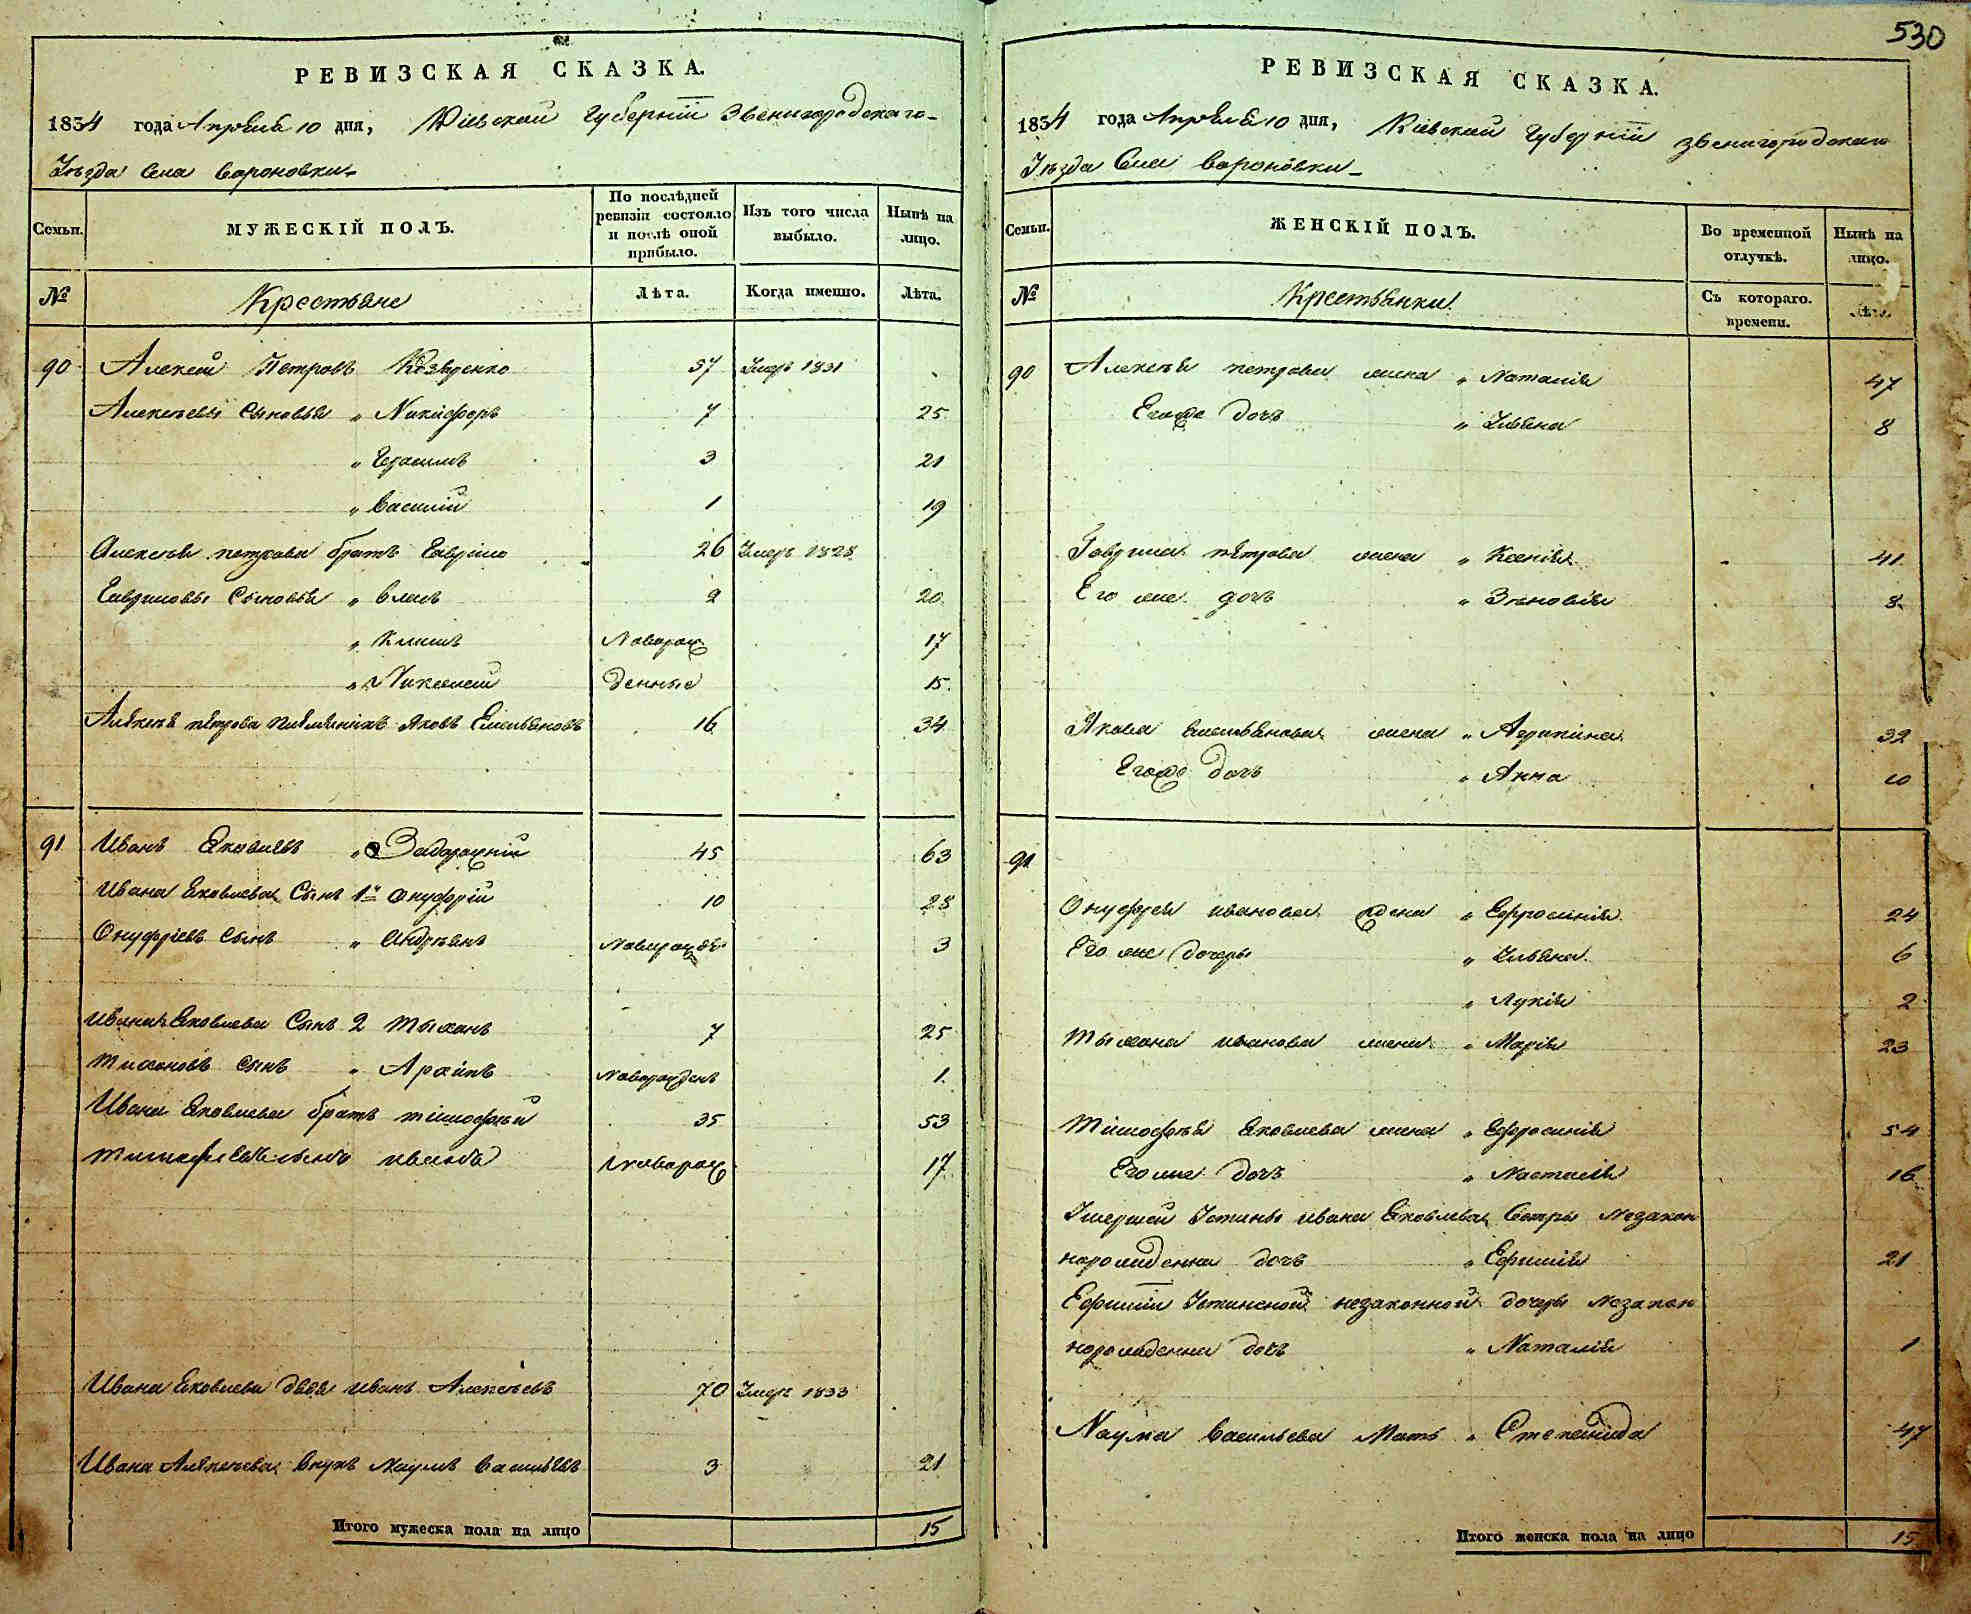 530
РЕВИЗСКАЯ СКАЗКА.
1834 года Апреля 10 дня, Киевской Губерніи Звенигородскаго
Уезда Села Вороновки
Семьи. МУЖЕСКІЙ ПОЛЪ. По послѣдней ревизіи состояло и послѣ оной прибыло. Изъ того числа выбыло. Нынѣ на лицо.
№ Крестьяне Лѣта. Когда именно. Лѣта.
90 Алексей Петровъ 57 Умеръ 1831
Алексеевы Сыновья „ Никифоръ 7 25
„ Герасимъ 3 21
„ Василий 1 19
Алексея петрова братъ Гаврило 26 Умеръ 1828
Гавриловы Сыновья „ Власъ 2 20
„ Климъ Новорож 17
„ Алексей денные 15
Алексея петрова племянникъ Яковъ Емельяновъ 16 34
91 Иванъ Яковлевъ „ Задорожній 45 63
Ивана Яковлева Сынъ 1й Онуфрій 10 28
Онуфріевъ Сынъ „ Андреянъ Новорожде 3
Ивана Яковлева Сынъ 2 Тыханъ 7 25
Тихоновъ Сынъ „ Архипъ Новорожденъ 1
Ивана Яковлева братъ Тимофей 35 53
Тимофеевъ сынъ иванъ Новорож 17
Ивана Яковлева дядя иванъ Алексеевъ 70 Умеръ 1833
Ивана Алексеева Внукъ Наумъ Васильевъ 3 21
Итого мужеска пола на лицо 15
РЕВИЗСКАЯ СКАЗКА.
1834 года Апреля 10 дня, Киевской Губерніи звенигородскаго
Уезда Села Вороновки
Семьи. ЖЕНСКІЙ ПОЛЪ. Во временной отлучкѣ. Нынѣ на лицо.
№ Крестьянки Съ котораго времени. Лѣта.
90 Алексея петрова жена „ Наталія 47
Егоже дочь „ Ульяна 8
Гаврила петрова жена „ Ксенія 41
Его же дочь „ Зеновія 8
Якова Емельянова жена „ 32
Егоже дочь „ Анна 10
91
Онуфрея иванова жена „ Ефросинія 24
Его же дочеры „ Ульяна 6
„ Лукія 2
Тыхона иванова жена „ Марія 23
Тимофея Яковлева жена „ Ефросинія 54
Его же дочь „ Настасія 16
Умершей Устины ивана Яковлева Сестры Незакон
норожденна дочь „ Ефимія 21
Ефиміи Устинской незаконной дочеры Незакон
норожденна дочь „ Наталія 1
Наума Васильева Мать „ Степанида 47
Итого женска пола на лицо 15